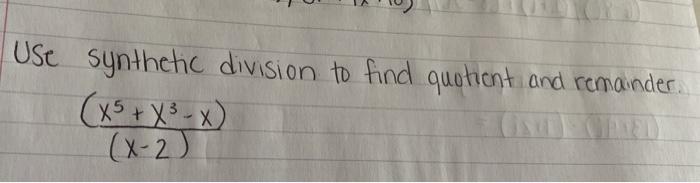 Use synthetic division to find quotient and remainder.
(x⁵ + x³ - x)
(x-2)